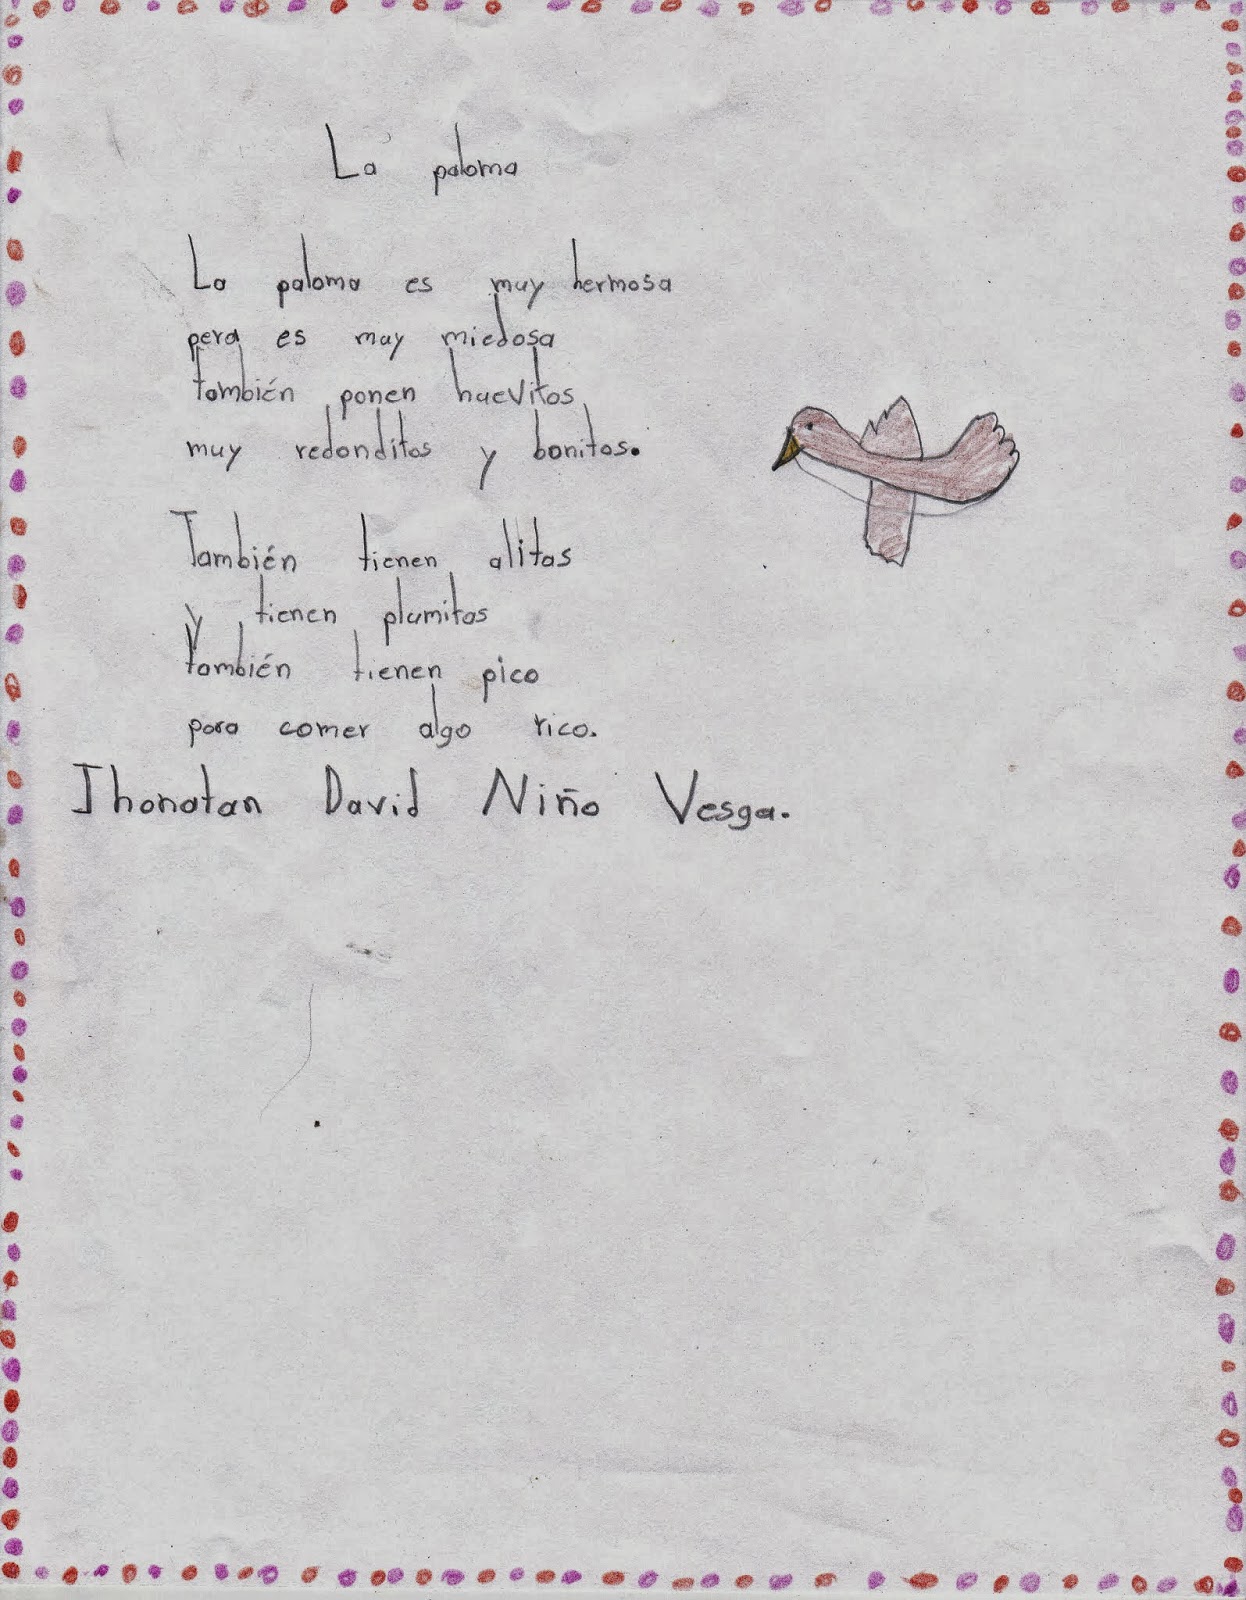 La paloma
La paloma es muy hermosa
pero es muy miedosa
también ponen huevitos
muy redonditos y bonitos.
También tienen alitas
y tienen plumitas
también tienen pico
para comer algo rico.
Jhonatan David Niño Vesga.